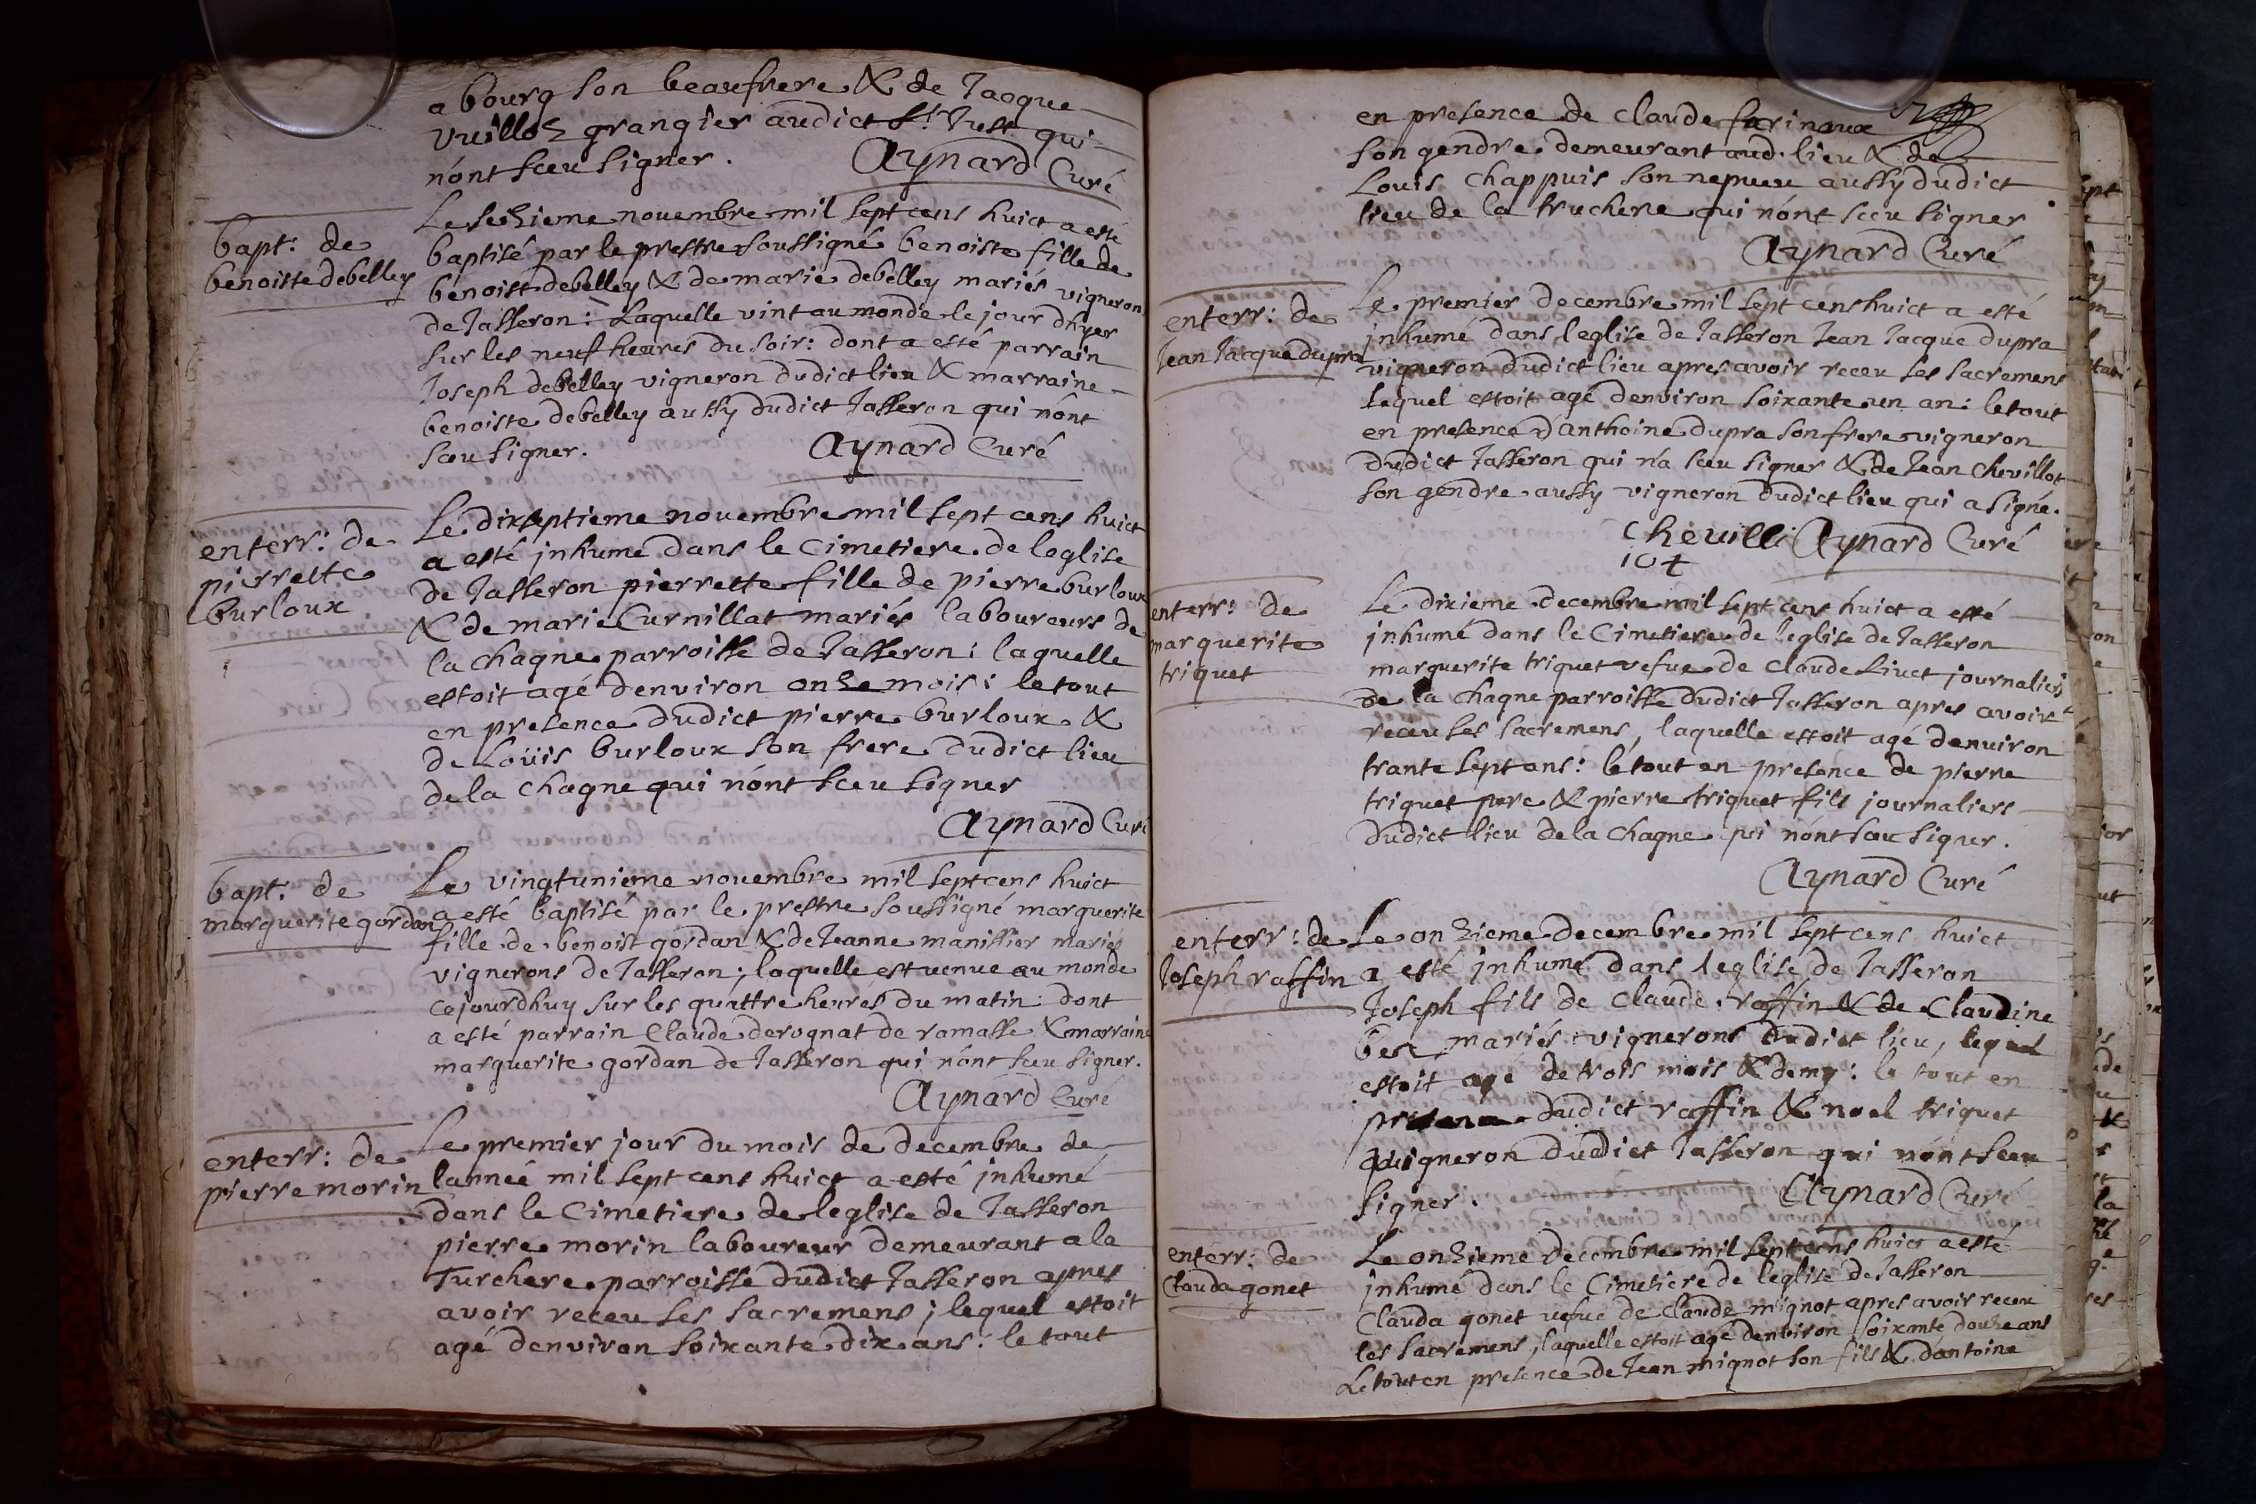 a bourg son beaufrere & de Jacque
vuilloz grangier audict St Just qui
n'ont sceu signer.
Aynard Curé
bapt: de
benoiste debelley
Le seizieme novembre mil sept cens huict a esté
baptisé par le prestre soussigné benoiste fille de
benoist debelley & de marie debelley mariés vignerons
de Jasseron: Laquelle vint au monde le jour dhyer
sur les neuf heures du soir: dont a esté parrain
Joseph debelley vigneron dudict lieu & marraine
benoiste debelley aussy dudict Jasseron qui n'ont
sceu signer.
Aynard Curé
enterr: de
pierrette
burloux
Le dixseptieme novembre mil sept cens huict
a esté jnhumé dans le Cimetiere de leglise
de Jasseron pierrette fille de pierre burloux
& de marie Curnillat mariés laboureurs de
la chagne parroisse de Jasseron: laquelle
estoit agé denviron onze mois: le tout
en presence dudict pierre burloux &
de Loüis burloux son frere dudict lieu
de la chagne qui n'ont sceu signer
Aynard Curé
bapt: de
marguerite gordan
Le vingtunieme novembre mil sept cens huict
a esté baptisé par le prestre soussigné marguerite
fille de benoist gordan & de Jeanne manissier mariés
vignerons de Jasseron; laquelle est venue au monde
cejourdhuy sur les quattre heures du matin: dont
a esté parrain Claude derognat de ramasse & marraine
marguerite gordan de Jasseron qui n'ont sceu signer.
Aynard Curé
enterr: de
pierre morin
Le premier jour du mois de decembre de
lanneé mil sept cens huict a esté jnhumé
dans le Cimetiere de leglise de Jasseron
pierre morin laboureur demeurant a la
Turchere parroisse dudict Jasseron apres
avoir receu ses sacremens; lequel estoit
agé denviron soixante dix ans: le tout
en presence de claude farinaux
son gendre demeurant aud. lieu & de
Louis chappuis son nepueu aussy dudict
lieu de la truchere qui n'ont sceu signer
Aynard Curé
enterr: de
Jean Jacque dupra
Le premier decembre mil sept cens huict a esté
jnhumé dans leglise de Jasseron Jean Jacque dupra
vigneron dudict lieu apres avoir receu ses sacremens
lequel estoit agé denviron soixante un an: le tout
en presence d'anthoine dupra son frere vigneron
dudict Jasseron qui n'a sceu signer & de Jean chevillot
son gendre aussy vigneron dudict lieu qui a signé.
Chevilli Aynard Curé
enterr: de
marguerite
triquet
Le dixieme decembre mil sept cens huict a esté
jnhumé dans le Cimetiere de leglise de Jasseron
marguerite triquet vefue de claude Livet journaliers
de la chagne parroisse dudict Jasseron apres avoir
receu ses sacremens, laquelle estoit agé denviron
trante sept ans: le tout en presence de pierre
triquet pere & pierre triquet fils journaliers
dudict lieu de la chagne qui n'ont sceu signer.
Aynard Curé
enterr: de
Joseph raffin
Le onzieme decembre mil sept cens huict
a esté jnhumé dans leglise de Jasseron
Joseph fils de claude raffin & de Claudine
mariés vignerons dudict lieu, lequel
estoit agé de trois mois & demy: le tout en
presence dudict raffin & noel triquet
vigneron dudict Jasseron qui n'ont sceu
signer.
Aynard Curé
enterr: de
Clauda gonet
Le onzieme decembre mil sept cens huict a esté
jnhumé dans le Cimetiere de leglise de Jasseron
Clauda gonet vefue de claude mignot apres avoir receu
les sacremens, laquelle estoit agé denviron soixante douze ans
Le tout en presence de Jean mignot son fils & dantoine